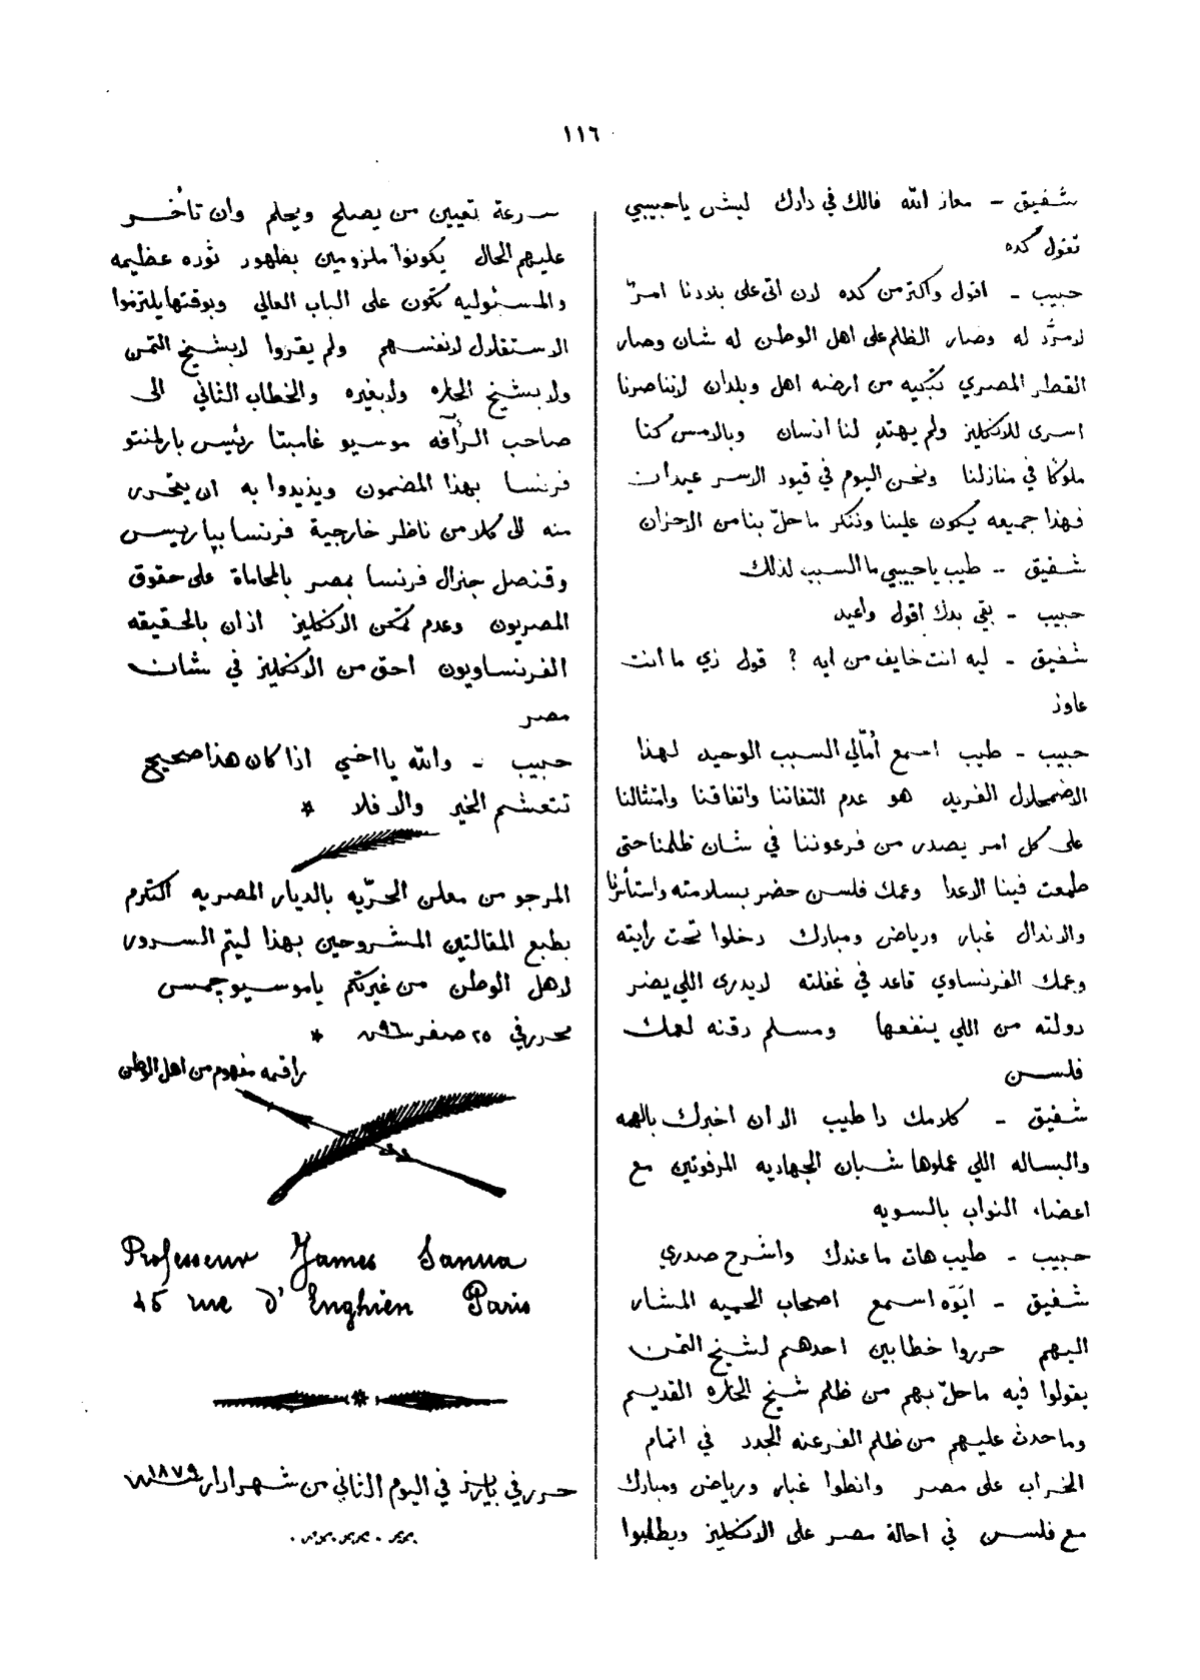 ١١٦
شفيق - معاذ الله فالك في دادك ليش ياحبيبي
تقول كده
حبيب - اقول واكتر من كده لان اتى على بلادنا امرٌ
لامردَّ له وصار الظلم على اهل الوطن له شان وصار
القطر المصري تبكيه من ارضه اهل وبلدان لاننا صرنا
اسرى للانكليز ولم يهتدِ لنا انسان وبالامس كنا
ملوكًا في منازلنا ونحن اليوم في قيود الاسر عبدان
فهذا جميعه يكون علينا ونتكر ما حلّ بنا من الاحزان
شفيق - طيب ياحبيبي ما السبب لذلك
حبيب - بقي بدك اقول واعيد
شفيق - ليه انت خايف من ايه ؟ قول زي ما انت
عاوز
حبيب - طيب اسمع أمّالي السبب الوحيد لهذا
الاضمحلال الفريد هو عدم التفاتنا واتفاقنا وامتثالنا
على كل امر يصدر من فرعوننا في شان ظلمنا حتى
طمعت فينا الاعدا وعمك فلسن حضر بسلامته واستأسرنا
والاندال غبار ورياض ومبارك دخلوا تحت رايته
وعمك الفرنساوي قاعد في غفلته لايدرى اللي يضر
دولته من اللي ينفعها ومسلم دقنه لعمك
فلسن
شفيق - كلامك دا طيب الان اخبرك بالهمه
والبساله اللي عملوها شبان الجهاديه المرفوتين مع
اعضاء النواب بالسويه
حبيب - طيب هات ما عندك واشرح صدري
شفيق - ايَوَه اسمع اصحاب الحميه المشار
اليهم حرروا خطابين احدهم لشيخ التمن
يقولوا فيه ما حلّ بهم من ظلم شيخ الحاره القديم
وما حدث عليهم من ظلم الفرعنه الجدد في اتمام
الخراب على مصر وانطوا غبار ورياض ومبارك
مع فلسن في احالة مصر على الانكليز ويطلبوا
سرعة تعيين من يصلح ويحلم وان تأخر
عليهم الحال يكونوا ملزومين بظهور ثوره عظيمه
والمسئوليه تكون على الباب العالي وبوقتها يلتزموا
الاستقلال لانفسهم ولم يقروا لابشيخ التمن
ولا بشيخ الحاره ولا بغيره والخطاب الثاني الى
صاحب الرأفه موسيو غامبتا رئيس بارلمنتو
فرنسا بهذا المضمون ويذيدوا به ان يتحرر
منه الى كلا من ناظر خارجية فرنسا بپاريس
وقنصل جنرال فرنسا بمصر بالمحاماة على حقوق
المصريون وعدم تمكن الانكليز اذ ان بالحقيقه
الفرنساويون احق من الانكليز في شان
مصر
حبيب - والله يا اخي اذا كان هذا صحيح
نتعشم الخير والا فلا *
المرجو من معلن الحرّيه بالديار المصريه التكرم
بطبع المقالتين المشروحين بهذا ليتم السرور
لاهل الوطن من غيرتكم ياموسيو جمس
محرر في ٢٥ صفر سنة ٩٦ *
راقمه مفهوم من اهل الوطن
Professeur James Sanua
45 rue d' Enghien Paris
حرر في باريز في اليوم الثاني من شهر ادار سنة ١٨٧٩